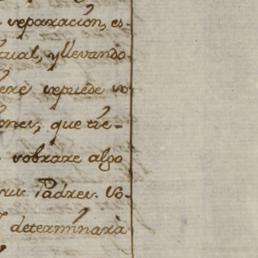 reparaxacion, es-
tual, y llevando
se puede vo
ones, que tre-
sobrare algo
sus Padres. Vo-
determinarà